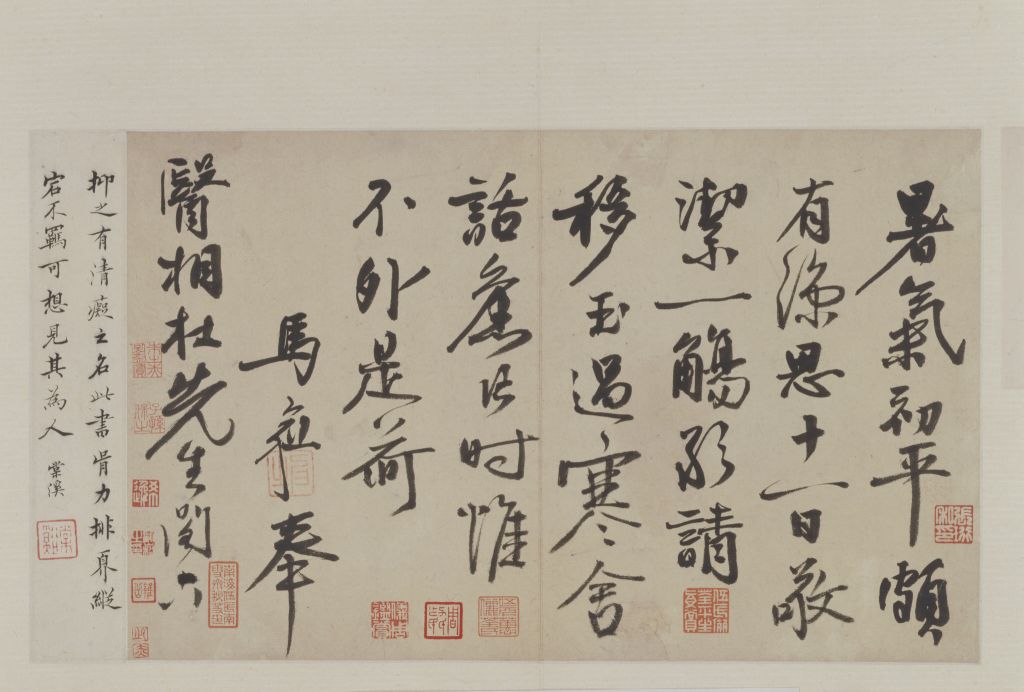 暑氣初平頗
有涼思十一日敬
潔一觴請
移玉過寒舍
話舊片时惟
不外是荷
馬愈奉
醫相杜先生閣下
抑之有清癡之名此書骨力排奡縱
宕不羈可想見其為人 棠溪